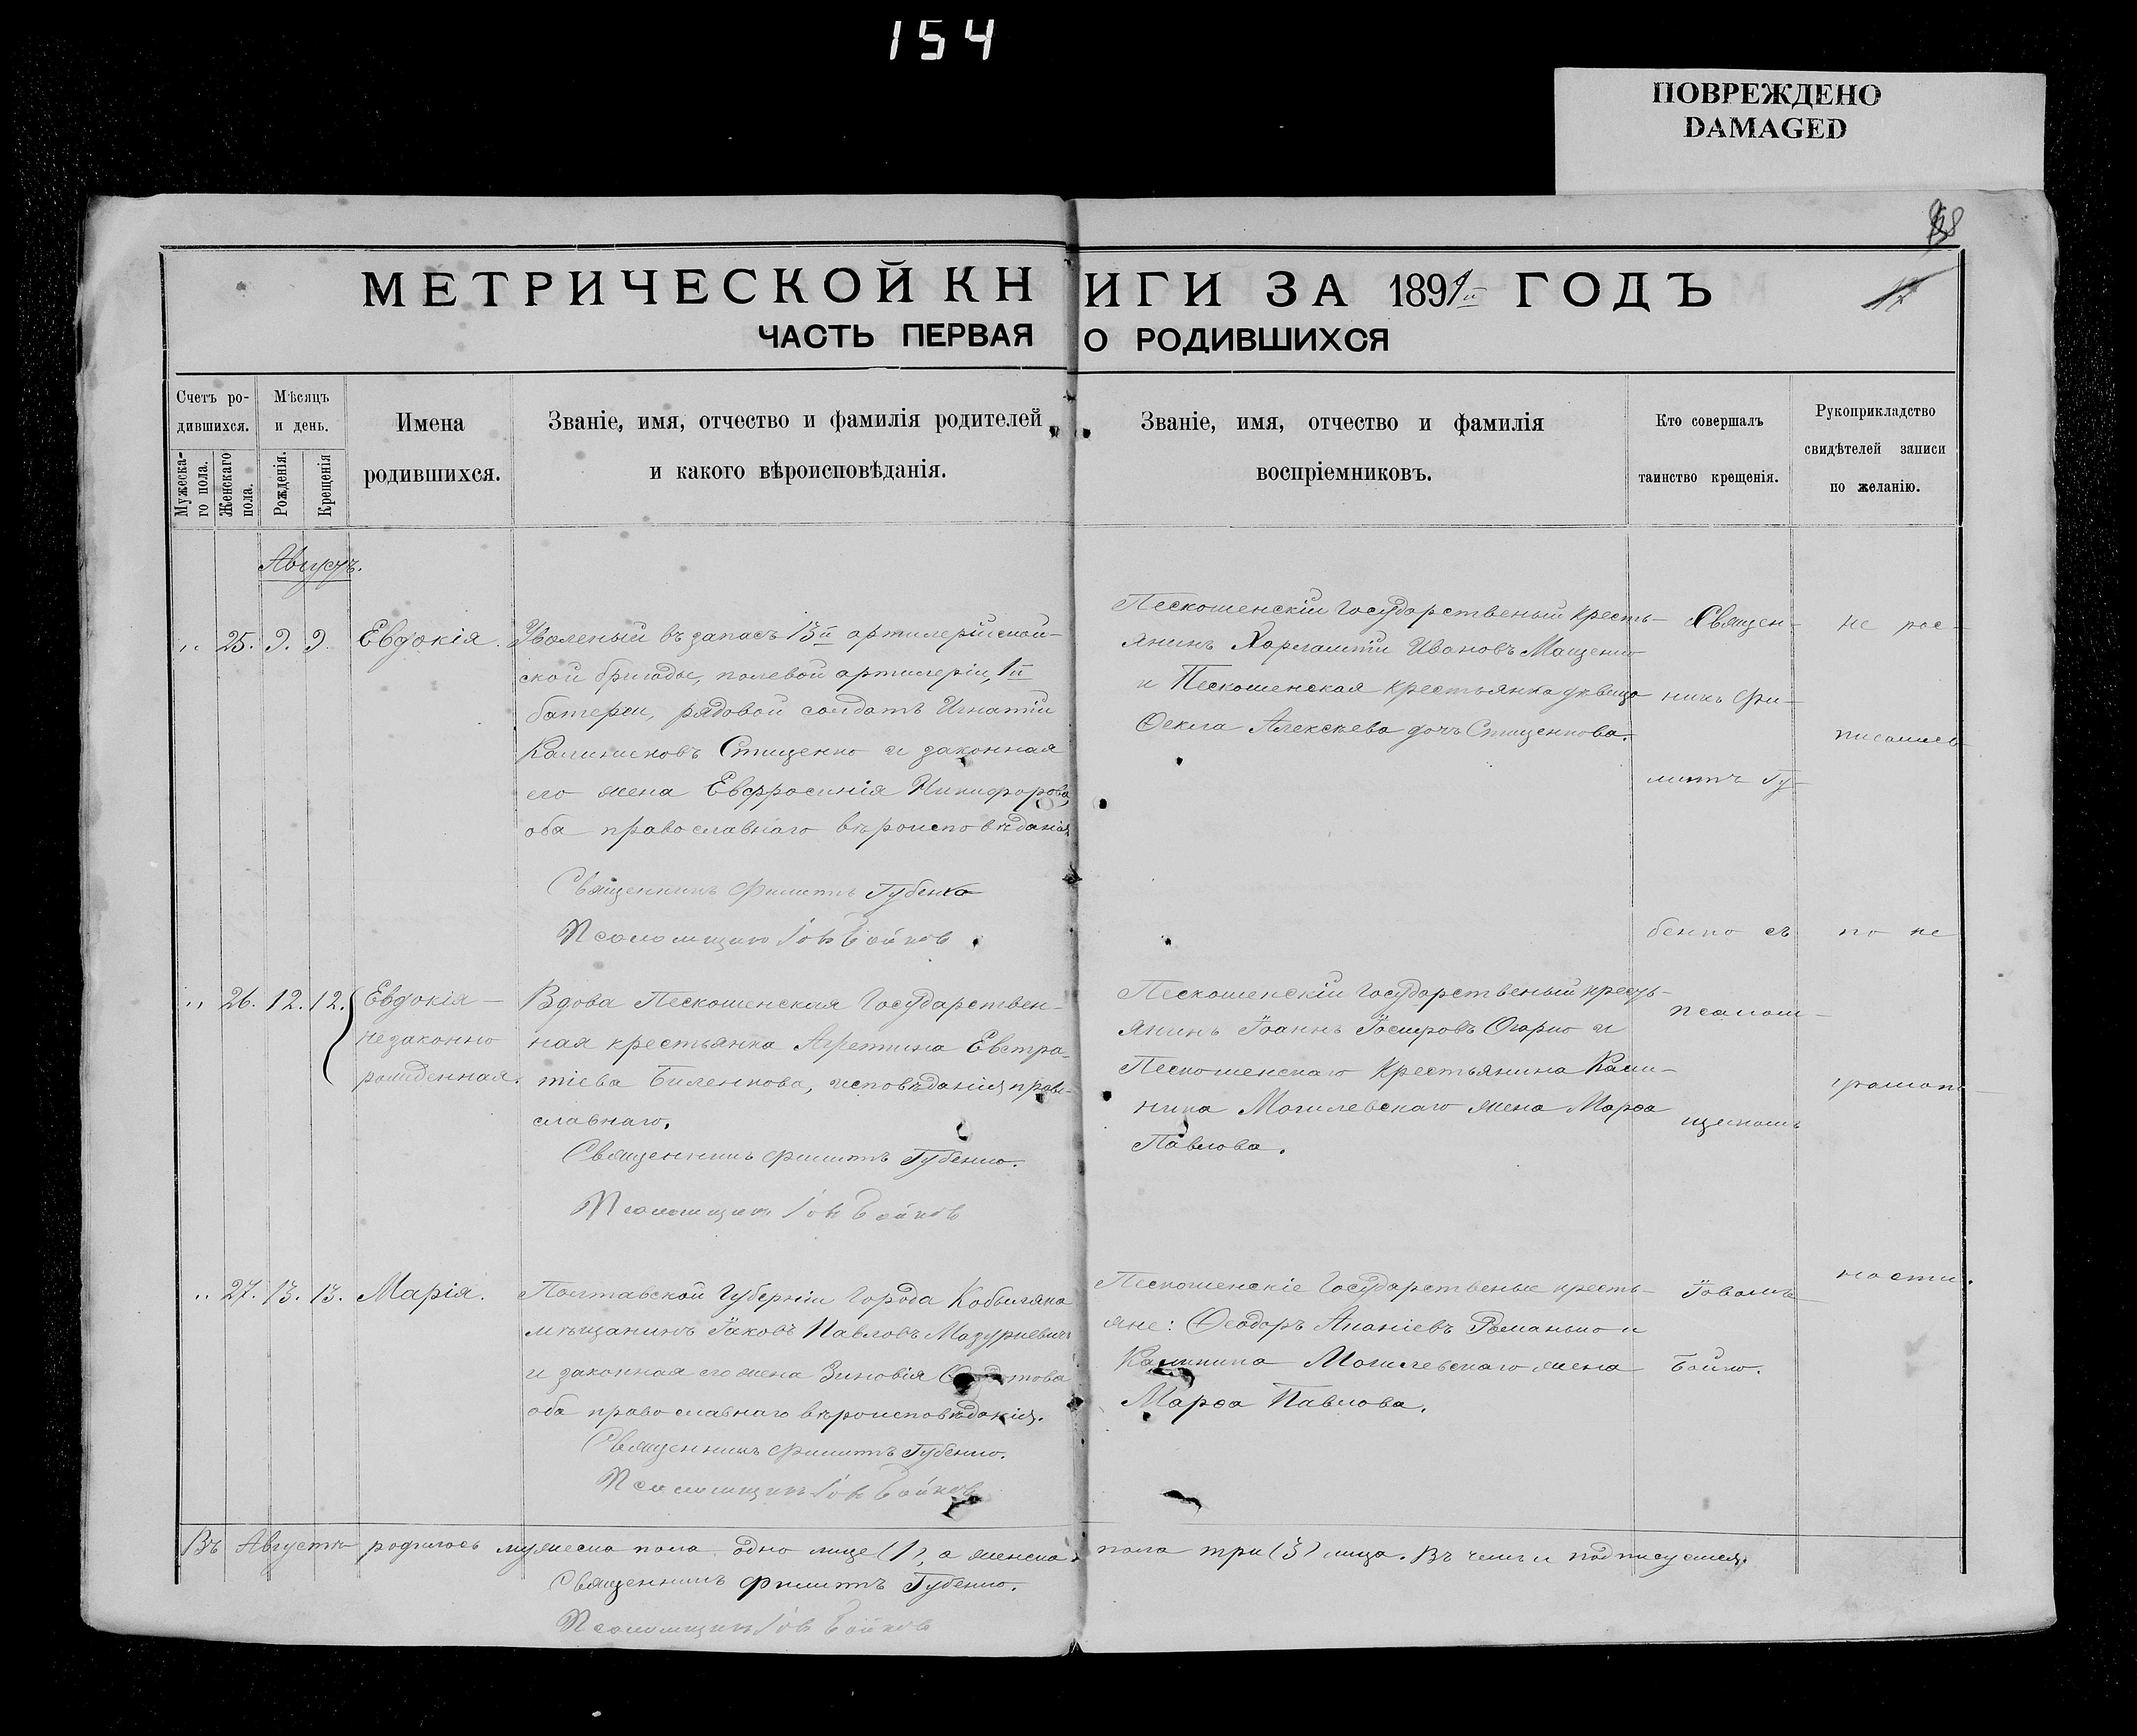 154
ПОВРЕЖДЕНО
DAMAGED
МЕТРИЧЕСКОЙ КНИГИ ЗА 1891й ГОДЪ
ЧАСТЬ ПЕРВАЯ О РОДИВШИХСЯ
Счетъ ро-
дившихся.
Мужеска-
го пола.
Женскаго
пола.
Мѣсяцъ
и день.
Рожденія.
Крещенія
Имена
родившихся.
Званіе, имя, отчество и фамилія родителей
и какого вѣроисповѣданія.
Званіе, имя, отчество и фамилія
воспріемниковъ.
Кто совершалъ
таинство крещенія.
Рукоприкладство
свидѣтелей записи
по желанію.
Августъ.
„ 25. 9. 9. Евдокія.
Уволеный въ запасъ 13й артилерійской-
ской бригады, полевой артилеріи, 1й
батереи, рядовой солдатъ Игнатій
Калиниковъ Стищенко и законная
его жена Евфросинія Никифорова,
оба православнаго вѣроисповѣданія
Священникъ Филиппъ Губенко
Псаломщикъ Іовъ Бойков
Пескошенскій Государственый кресть-
янинъ Иванов Мащенко
и Пескошенская крестьянка дѣвица
Ѳекла Алексѣева дочь Стищенкова.
„ 26. 12. 12. Евдокія —
незаконно
рожденная.
Вдова Пескошенская Государствен-
ная крестьянка Агрепина Евстра-
тіева Биленкова, исповѣданія право-
славнаго.
Священникъ Филиппъ Губенко.
Псаломщикъ Іовъ Бойков
Пескошенскій Государственый кресть-
янинъ Іоаннъ Іосифовъ и
Пескошенскаго Крестьянина Кали-
ника Могилевскаго жена Марѳа
Павлова.
„ 27. 13. 13. Марія.
Полтавской Губерніи Города Кобыляка
мѣщанинъ Іаковъ Павловъ Мазуркевичъ
и законная его жена Зиновія
оба православнаго вѣроисповѣданія.
Священникъ Филиппъ Губенко.
Псаломщикъ Іовъ Бойков
Пескошенскіе Государственые кресть-
яне: Ѳеодоръ Ананіевъ Романько и
Калиника Могилевскаго жена
Марѳа Павлова.
Священ-
никъ Фи-
липпъ Гу-
бенко съ
псалом-
щикомъ
Іовомъ
Бойко.
не рос-
писались
по не
грамот-
ности.
Въ Августѣ родилось мужеска пола одно лице (1), а женска пола три (3) лица. Въ чемъ и подписуемся.
Священникъ Филиппъ Губенко.
Псаломщикъ Іовъ Бойков